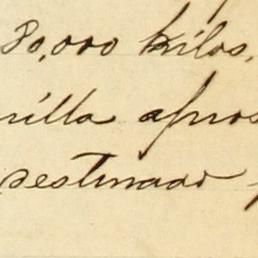 80,000 kilos,
rilla apros
destinado